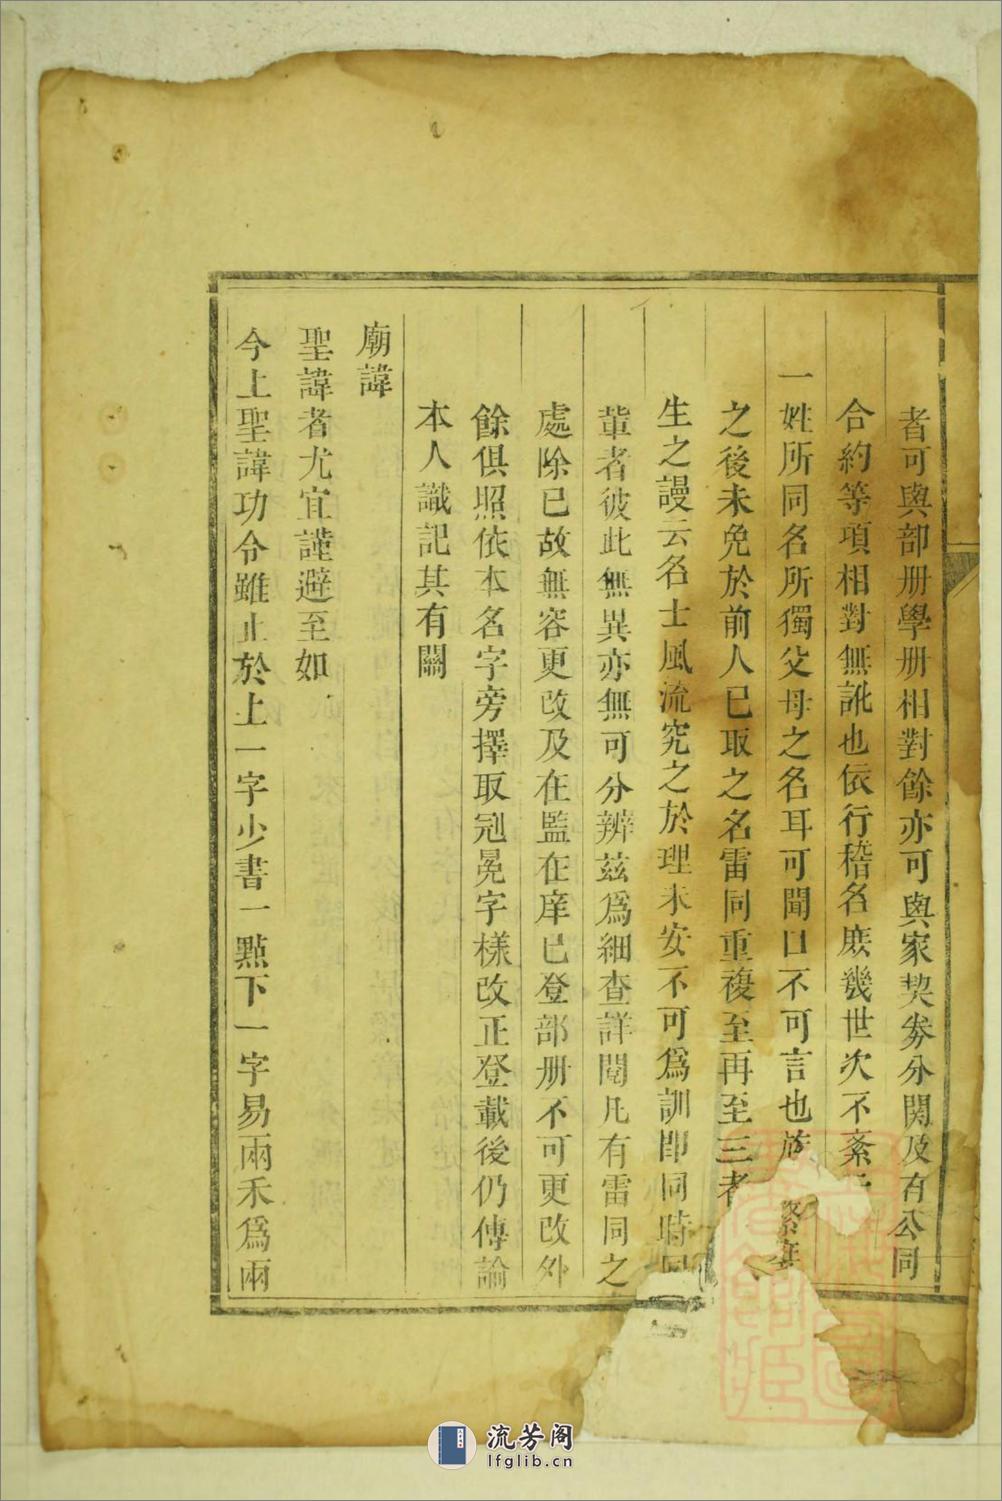 者可與部册學册相對餘亦可與家契劵分関及有公同
合約等項相對無訛也依行稽名庶幾世次不紊
一姓所同名所獨父母之名耳可聞口不可言也族繁
之後未免於前人已取之名雷同重複至再至三者
生之謾云名士風流究之於理未安不可爲訓即同時同
軰者彼此無異亦無可分辨兹爲細查詳閱凡有雷同之
處除已故無容更改及在監在庠已登部册不可更改外
餘俱照依本名字旁擇取冠冕字樣改正登載後仍傳諭
本人識記其有關
廟諱
聖諱者尤宜謹避至如
今上聖諱功令雖止於上一字少書一點下一字易兩禾爲兩
流芳阁
lfglib.cn